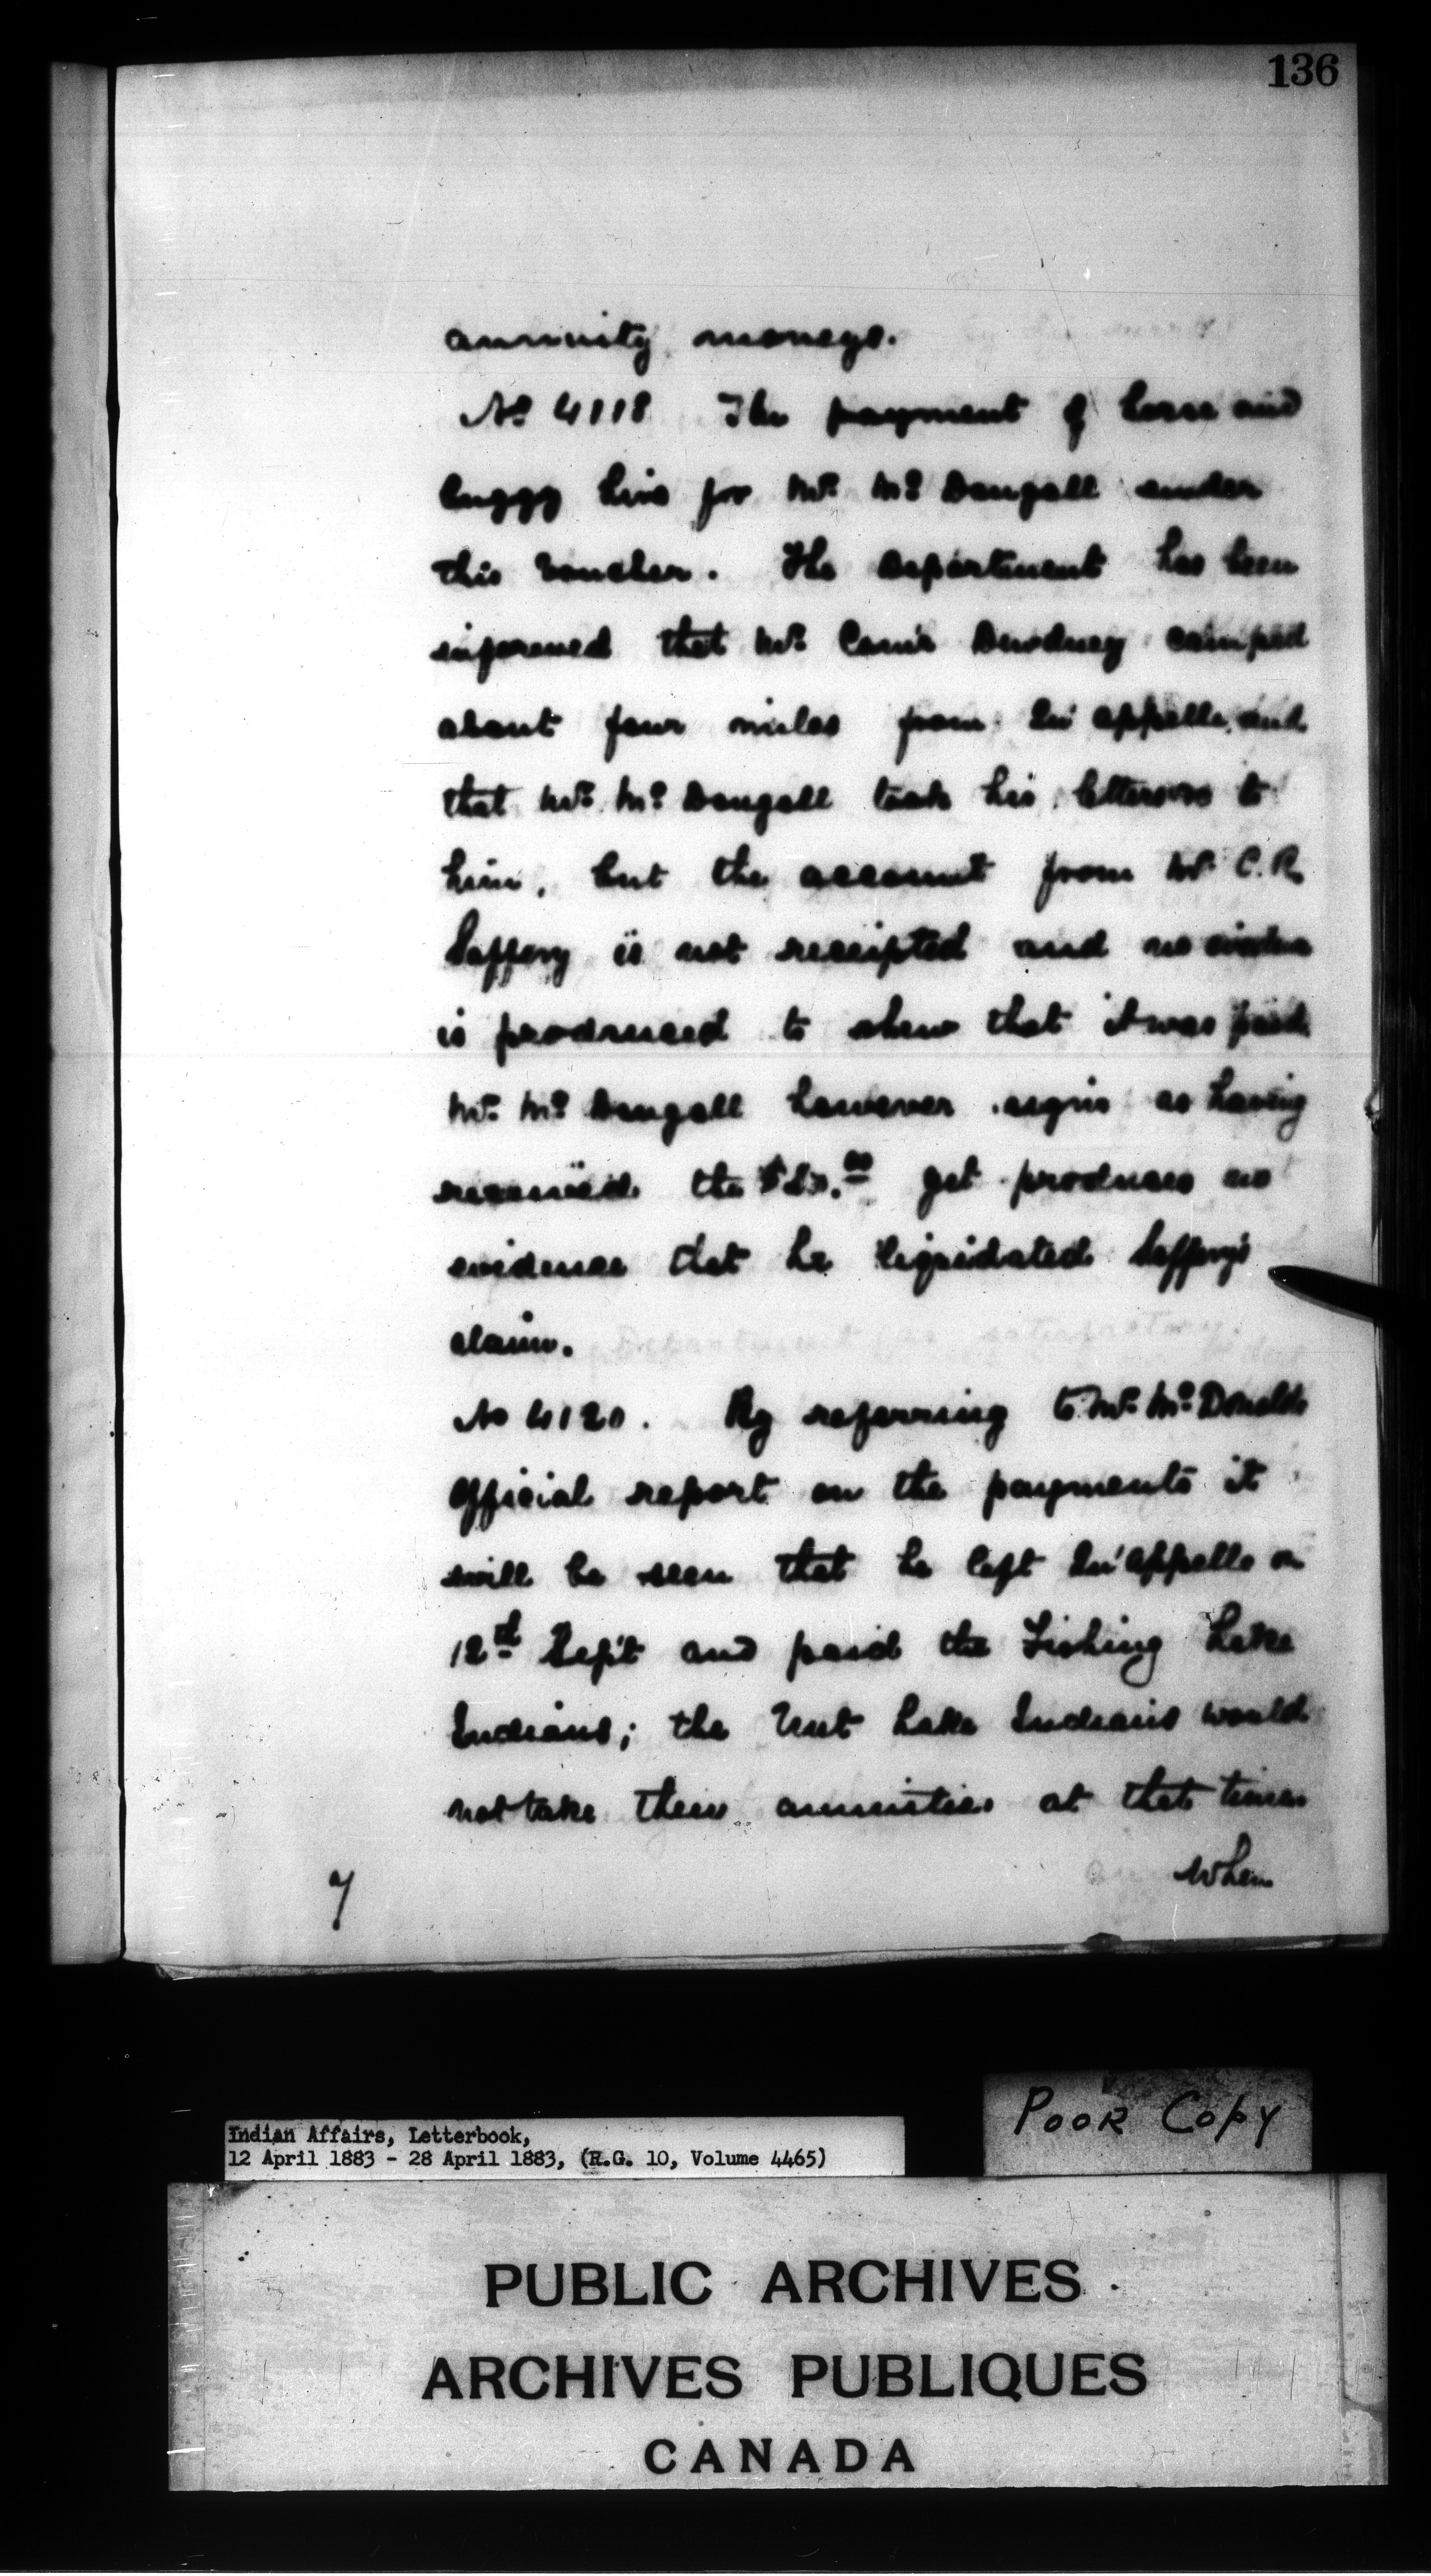 136
annuity moneys.
No 4118 The payment of horse and
buggy hire for Mr. Mc Dougall under
this voucher. The Department has been
informed that Mr. Com'r Dewdney camped
about four miles from Qu'appelle, and
that Mr. Mc Dougall took his letters to
him, but the account from Mr. C.R.
Saffery is not receipted and no
is produced to shew that it was paid
Mr. Mc Dougall however signs as having
received the yet produces no
evidence that he liquidated Saffery's
claim.
No 4120. By referring to Mr. Mc Donalds
Official report on the payments it
will be seen that he left Qu'appelle on
12th Sep't and paid the Fishing Lake
Indians; the Nut Lake Indians would
not take their annuities at that time
When
7
Poor Copy
Indian Affairs, Letterbook,
12 April 1883 - 28 April 1883, (R.G. 10, Volume 4465)
PUBLIC ARCHIVES
ARCHIVES PUBLIQUES
CANADA